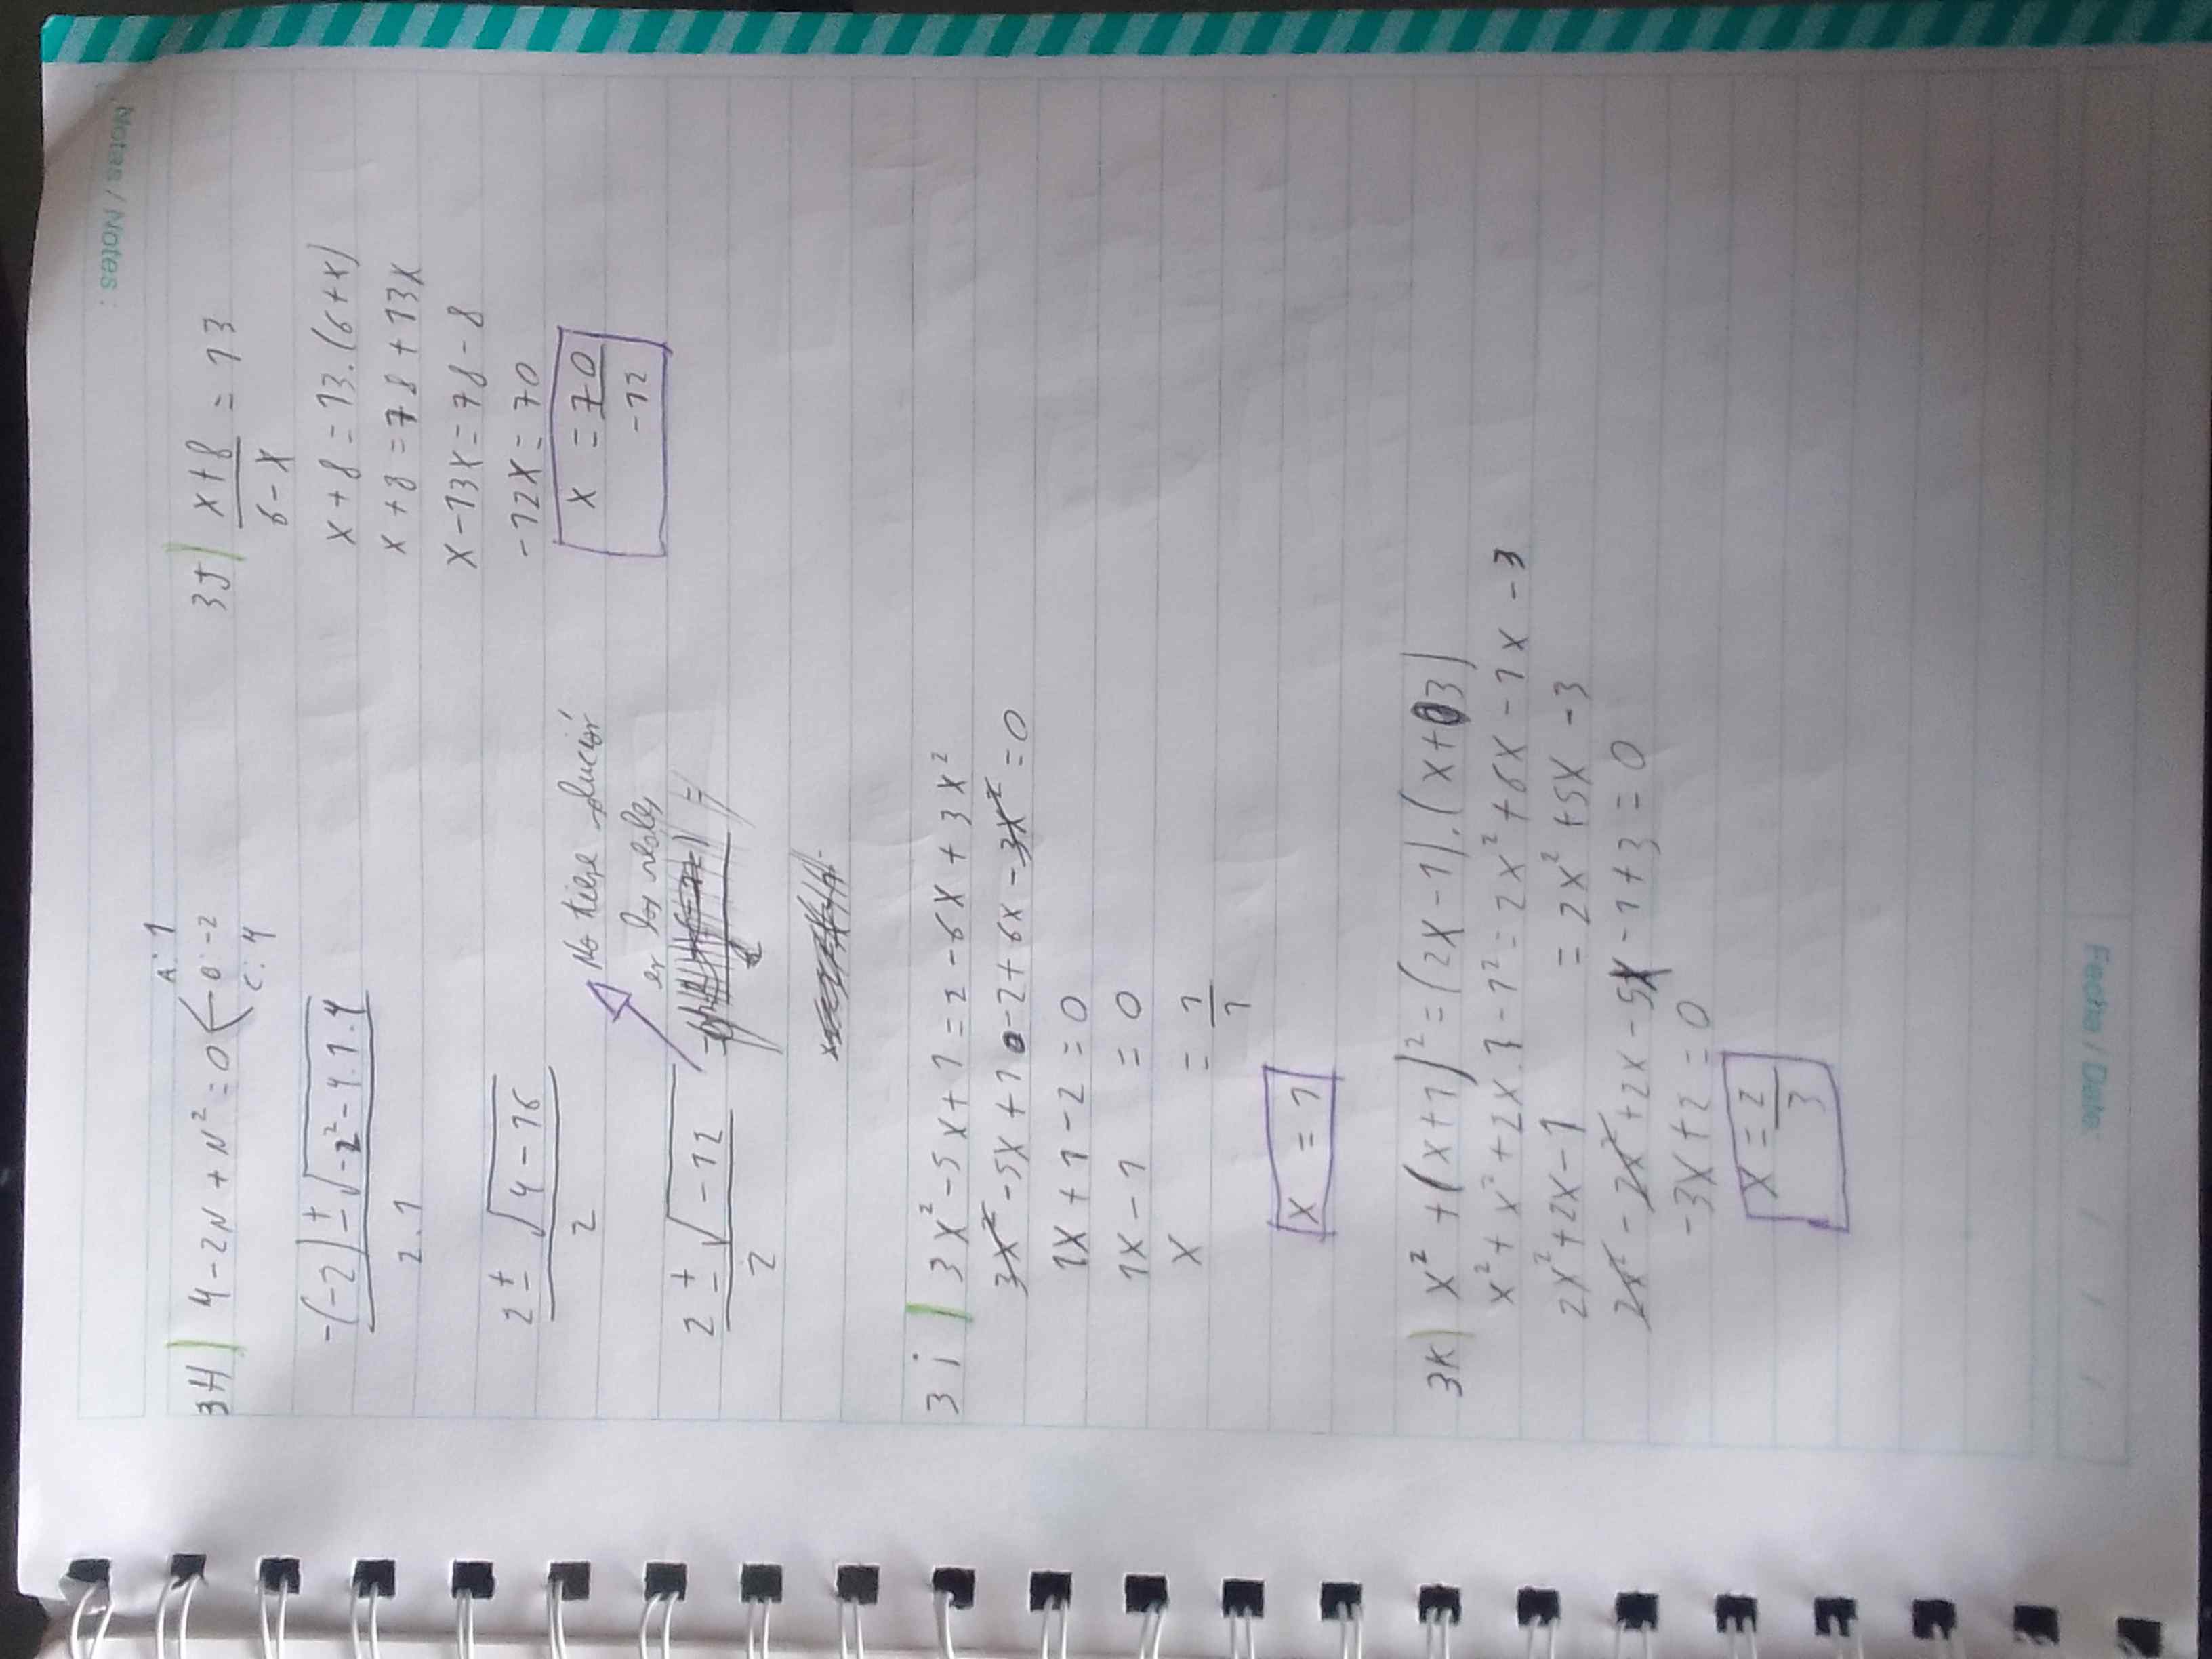 Notas / Notes:
3H) 4-2N+N²=0 A: 1 B: -2 C: 4
-(-2)±√-2²-4.1.4
2.1
2±√4-16
2
No tiene solución
en los reales
2±√-12
2
3J) x+8 = 13
6-x
x+8=13.(6+x)
x+8=78+13x
x-13x=78-8
-12x=70
x =70
-12
3i) 3x²-5x+1=2-6x+3x²
3x²-5x+1-2+6x-3x²=0
1x+1-2=0
1x-1 =0
x = 1
1
x =1
3K) x²+(x+1)²=(2x-1).(x+3)
x²+x²+2x.1-1²=2x²+6x-1x-3
2x²+2x-1 =2x²+5x-3
2x²-2x²+2x-5x-1+3=0
-3x+2=0
x=2
3
Fecha / Date: / /